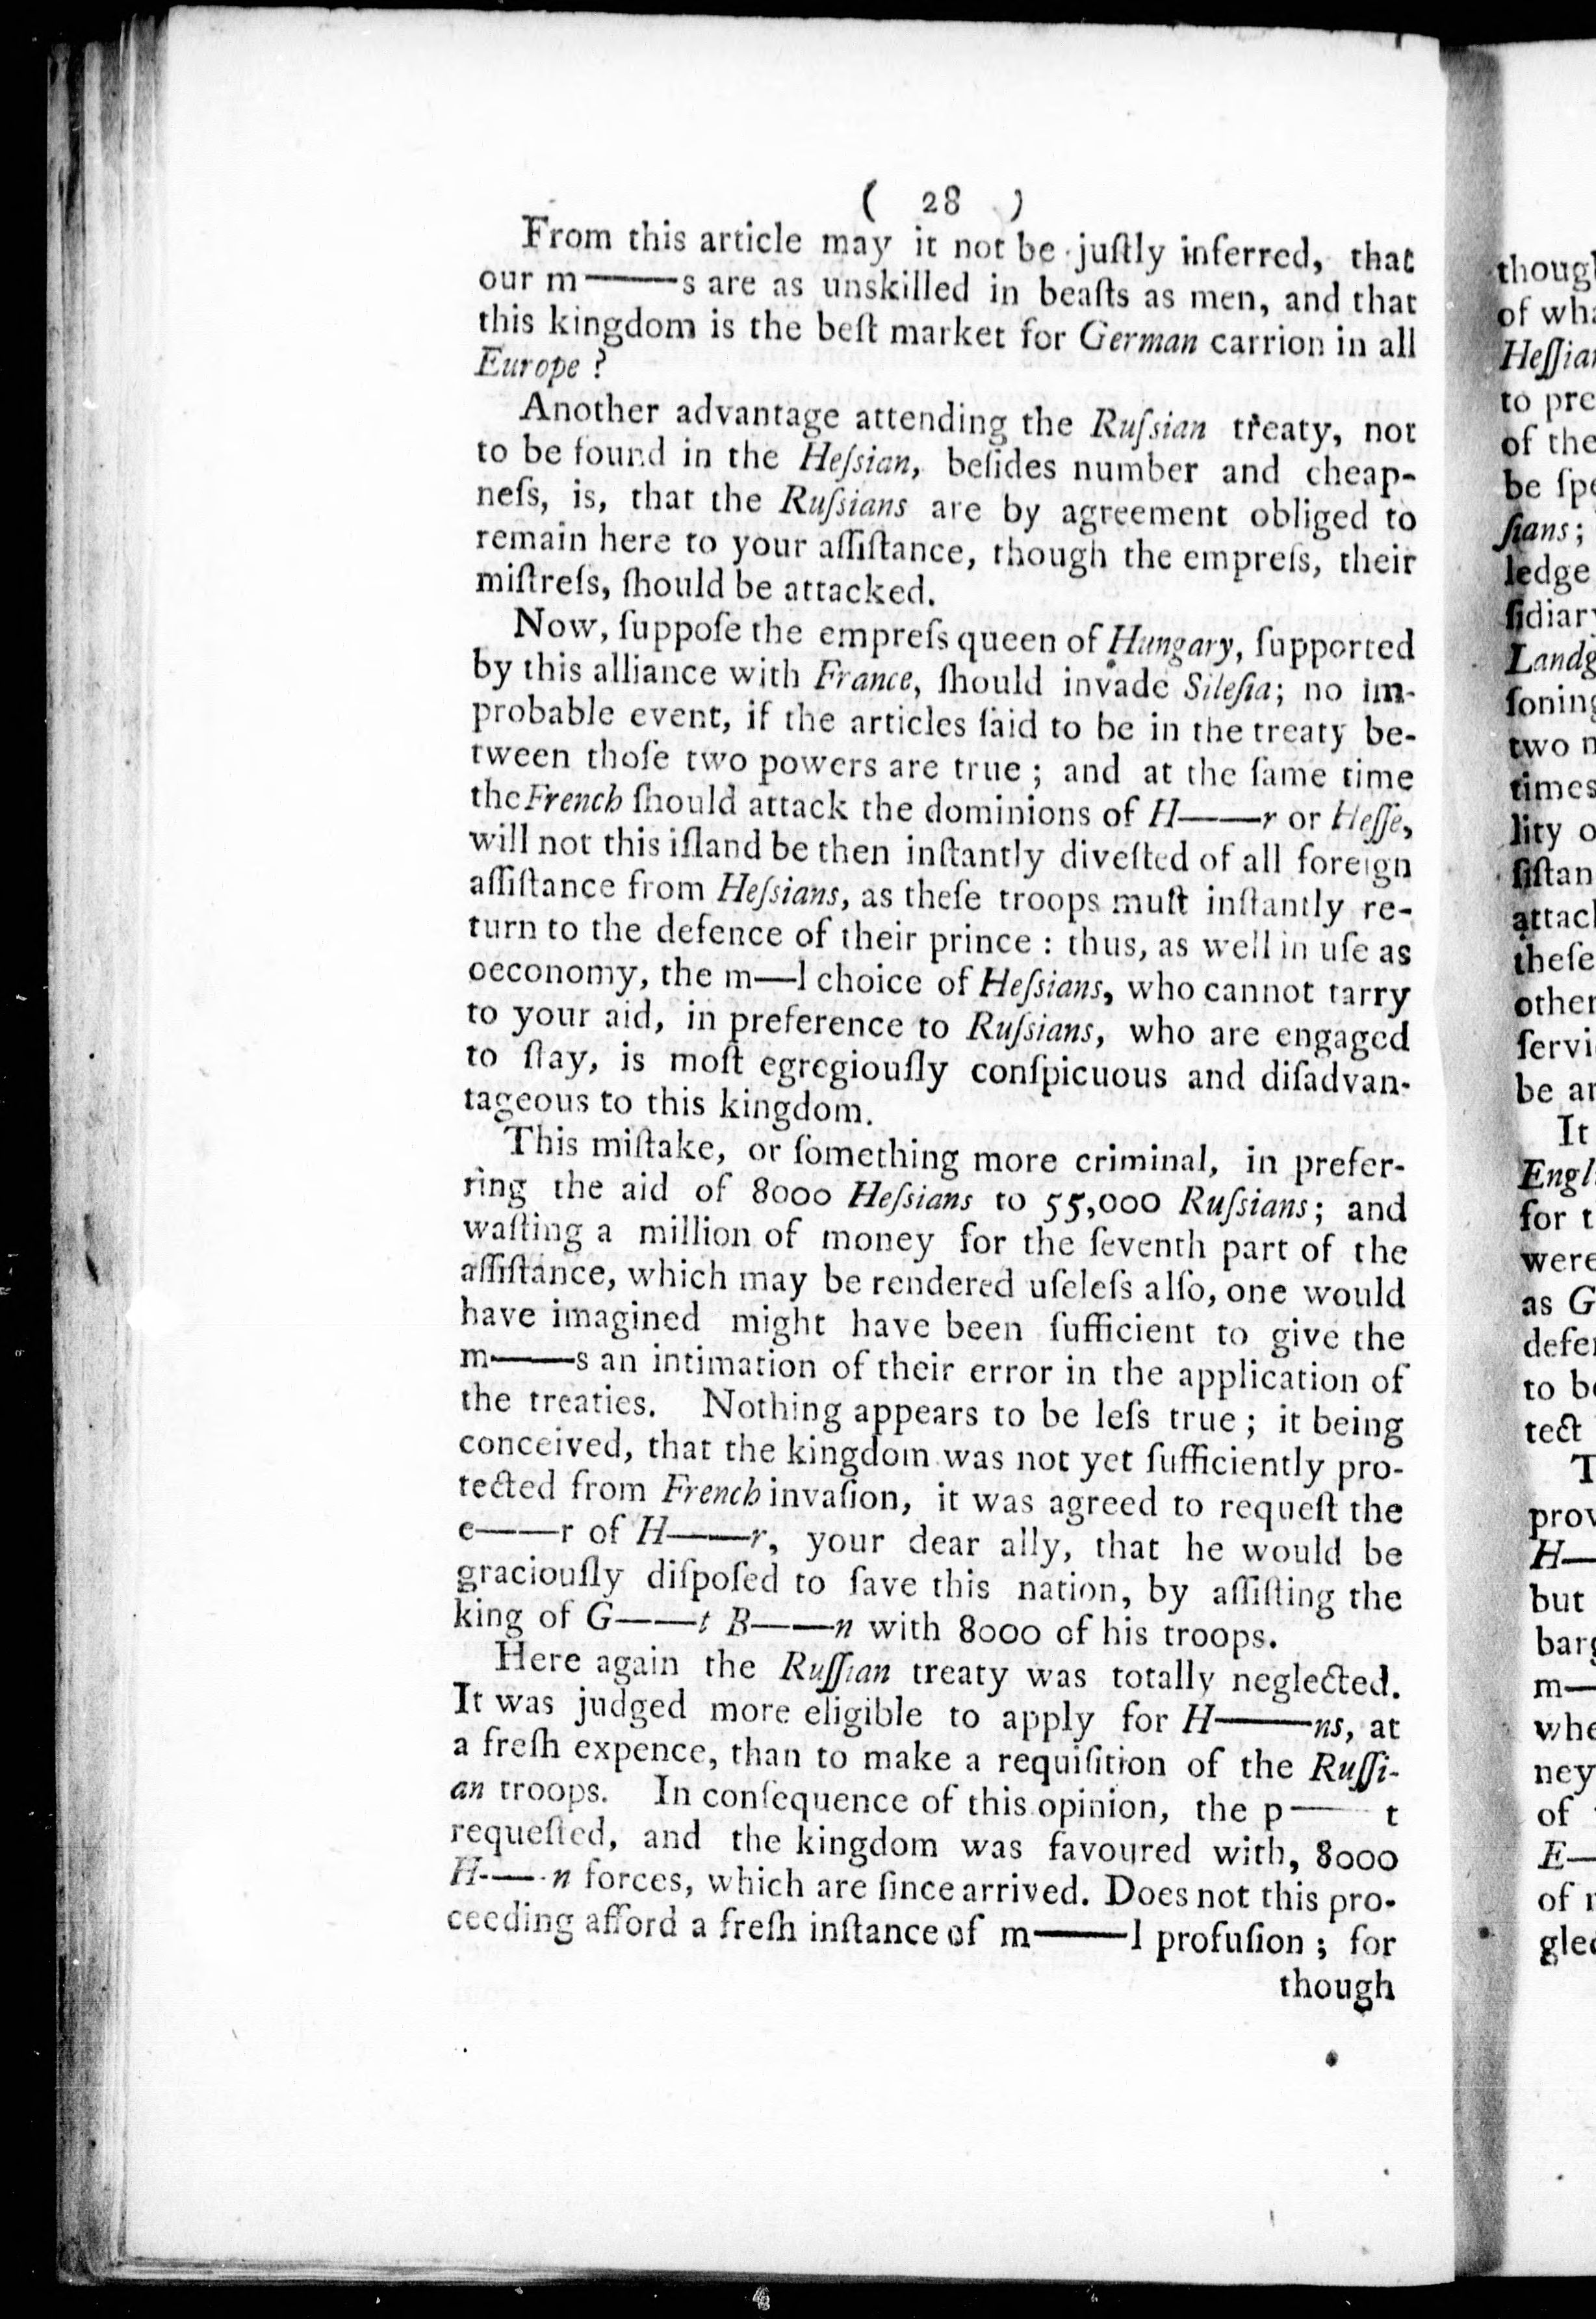 ( 28 )
From this article may it not be juſtly inferred, that
our m———s are as unskilled in beaſts as men, and that
this kingdom is the beſt market for German carrion in all
Europe ?
Another advantage attending the Ruſsian treaty, not
to be found in the Heſsian, beſides number and cheap-
neſs, is, that the Ruſsians are by agreement obliged to
remain here to your aſſiſtance, though the empreſs, their
miſtreſs, ſhould be attacked.
Now, ſuppoſe the empreſs queen of Hungary, ſupported
by this alliance with France, ſhould invade Sileſia; no im-
probable event, if the articles ſaid to be in the treaty be-
tween thoſe two powers are true ; and at the ſame time
the French ſhould attack the dominions of H——r or Heſſe,
will not this iſland be then inſtantly diveſted of all foreign
aſſiſtance from Heſsians, as theſe troops muſt inſtantly re-
turn to the defence of their prince : thus, as well in uſe as
oeconomy, the m—l choice of Heſsians, who cannot tarry
to your aid, in preference to Ruſsians, who are engaged
to ſtay, is moſt egregiouſly conſpicuous and diſadvan-
tageous to this kingdom.
This miſtake, or ſomething more criminal, in prefer-
ring the aid of 8000 Heſsians to 55,000 Ruſsians; and
waſting a million of money for the ſeventh part of the
aſſiſtance, which may be rendered uſeleſs alſo, one would
have imagined might have been ſufficient to give the
m———s an intimation of their error in the application of
the treaties. Nothing appears to be leſs true ; it being
conceived, that the kingdom was not yet ſufficiently pro-
tected from French invaſion, it was agreed to requeſt the
e——r of H——r, your dear ally, that he would be
graciouſly diſpoſed to ſave this nation, by aſſiſting the
king of G——t B——n with 8000 of his troops.
Here again the Ruſſian treaty was totally neglected.
It was judged more eligible to apply for H———ns, at
a freſh expence, than to make a requiſition of the Ruſſi-
an troops. In conſequence of this opinion, the p—— t
requeſted, and the kingdom was favoured with, 8000
H-—-n forces, which are ſince arrived. Does not this pro-
ceeding afford a freſh inſtance of m———l profuſion ; for
though
thoug
of wh
Heſſia
to pre
of the
be ſpe
ſians;
ledge
ſidiar
Landg
ſoning
two
times
lity o
ſiſtan
attac
theſe
other
ſervi
be a
It
Engl
for t
were
as G
defe
to b
tect
T
prov
H—
but
bar
m—
whe
ney
of
E—
of
gle